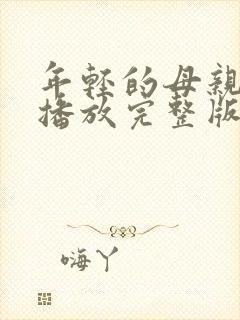 年轻的母亲
播放完整版
嗨丫